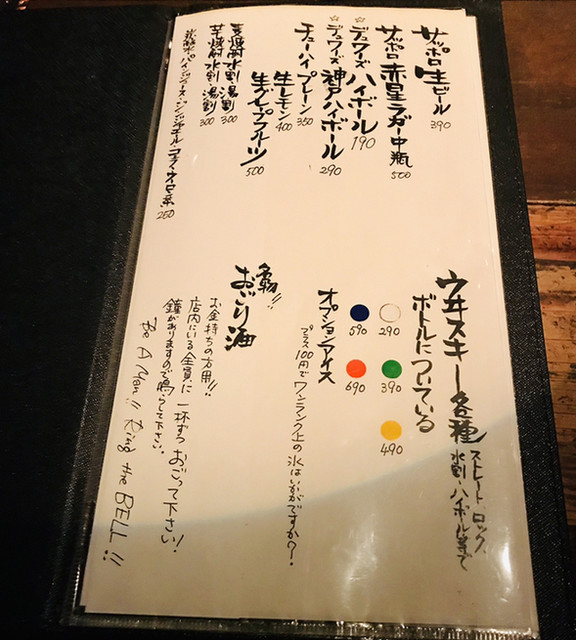 サッポロ生ビール 390
サッポロ赤星ラガー中瓶 500
☆デュワーズハイボール 190
☆デュワーズ神戸ハイボール 290
チューハイ プレーン 350
生レモン 400
生グレープフルーツ 500
麦焼酎水割 湯割 300
芋焼酎水割 湯割 300
炭酸水・パインジュース・ジンジャエール・コーラ・ウーロン茶 250
ウヰスキー各種 ストレート ロック
水割・ハイボール等で
ボトルについている
290
390
490
590
690
オプションアイス
プラス100円でワンランク上の氷はいかがですか?
感動!!
おごり酒
お金持ちの方用!!
店内にいる全員に一杯ずつおごって下さい!
鐘がありますので鳴らして下さい。
Be A Man!! Ring the BELL!!